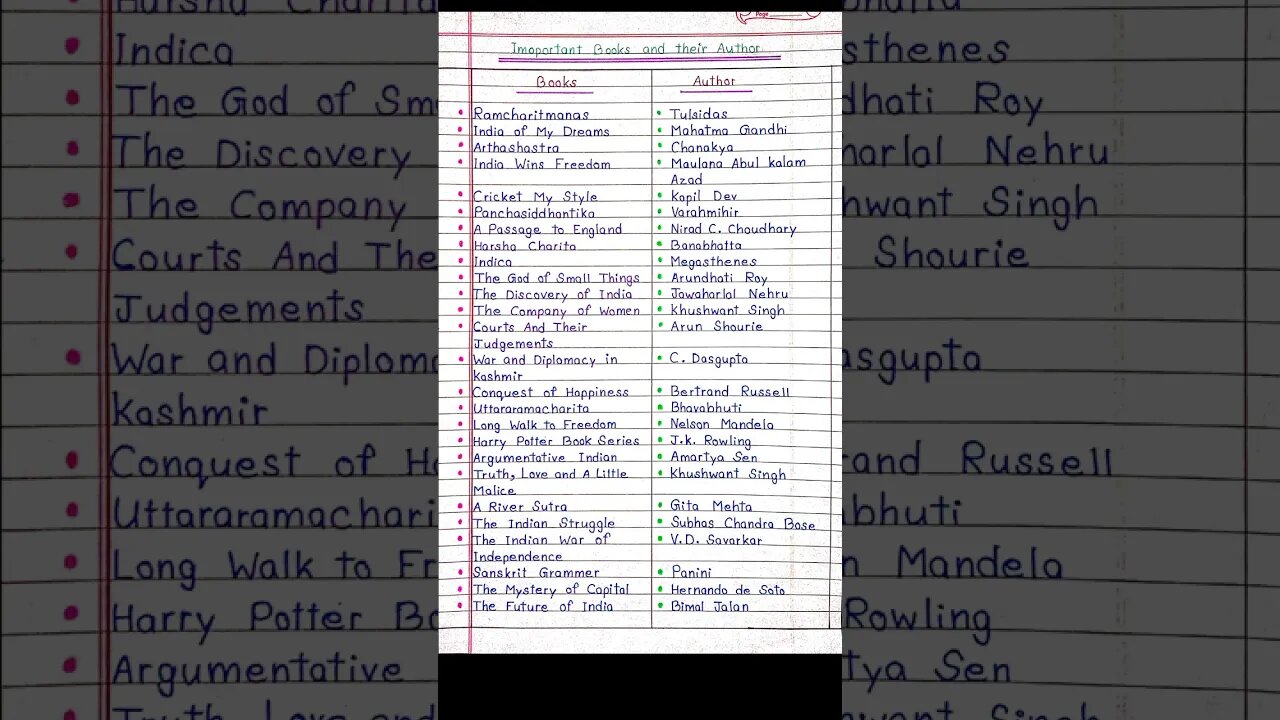 Page
Imoportant Books and their Author
Books Author
Ramcharitmanas Tulsidas
India of My Dreams Mahatma Gandhi
Arthashastra Chanakya
India Wins Freedom Maulana Abul kalam
Azad
Cricket My Style Kapil Dev
Panchasiddhantika Varahmihir
A Passage to England Nirad C. Choudhary
Harsha Charita Banabhatta
Indica Megasthenes
The God of Small Things Arundhati Roy
The Discovery of India Jawaharlal Nehru
The Company of Women Khushwant Singh
Courts And Their Arun Shourie
Judgements
War and Diplomacy in C. Dasgupta
Kashmir
Conquest of Happiness Bertrand Russell
Uttararamacharita Bhavabhuti
Long Walk to Freedom Nelson Mandela
Harry Potter Book Series J.k. Rowling
Argumentative Indian Amartya Sen
Truth, Love and A Little Khushwant Singh
Malice
A River Sutra Gita Mehta
The Indian Struggle Subhas Chandra Bose
The Indian War of V.D. Savarkar
Independence
Sanskrit Grammer Panini
The Mystery of Capital Hernando de Soto
The Future of India Bimal Jalan